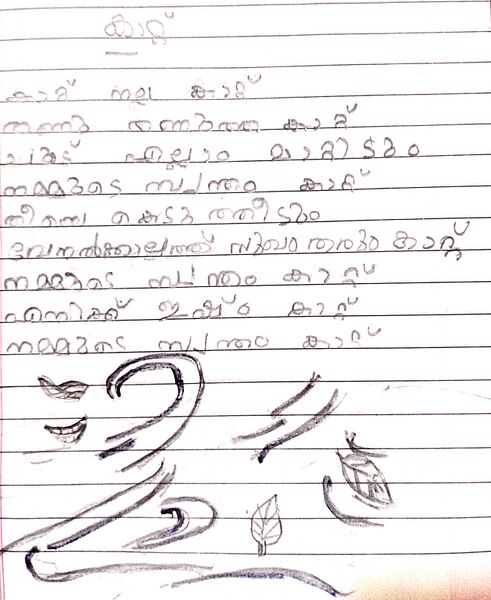 കാറ്റ്
കാറ്റ് നല്ല കാറ്റ്
തണു തണുത്ത കാറ്റ്
ചൂട് എല്ലാം മാറ്റിടും
നമ്മുടെ സ്വന്തം കാറ്റ്
തീയെ കെടുത്തീടും
വേനൽക്കാലത്ത് സുഖം തരും കാറ്റ്
നമ്മുടെ സ്വന്തം കാറ്റ്
എനിക്ക് ഇഷ്ടം കാറ്റ്
നമ്മുടെ സ്വന്തം കാറ്റ്